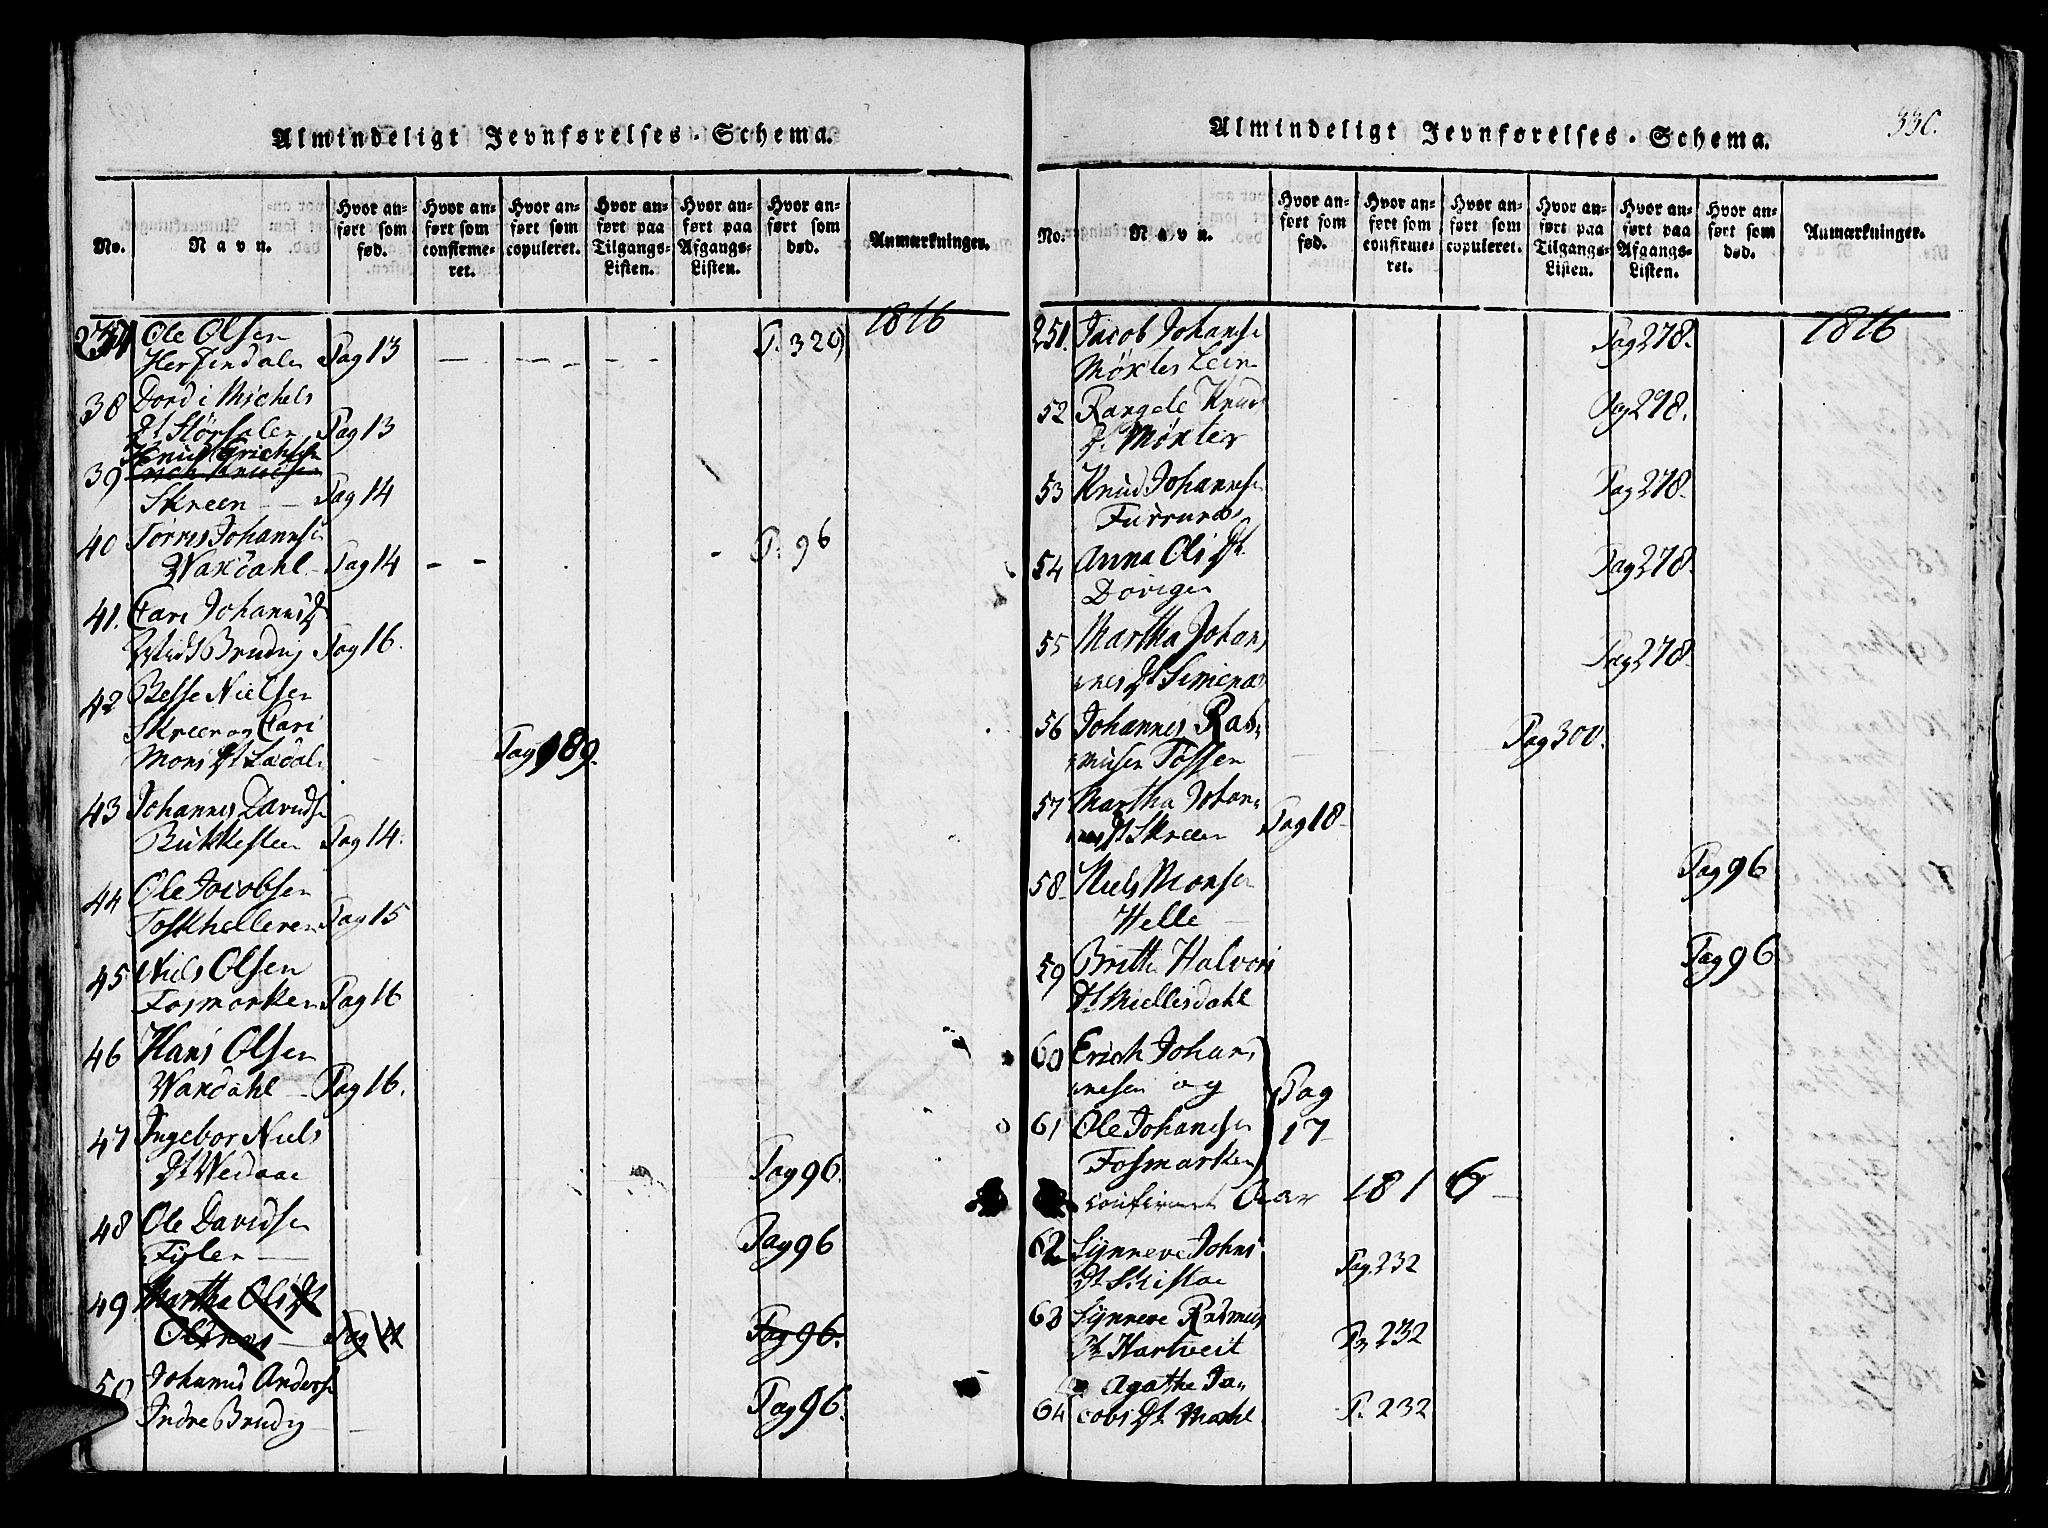 Almindeligt Jevnførelses-Schema.
No.
Navn.
Hvor an-
ført som
fød.
Hvor an-
ført som
confirme-
ret.
Hvor an-
ført som
copuleret.
Hvor an-
ført paa
Tilgangs-
Listen.
Hvor an-
ført paa
Afgangs-
Listen.
Hvor an-
ført som
død.
Anmærkninger.
1816
Ole Olsen
Herfindalen Pag 13 P. 329
38 Dordi Michels
Dt Størsalen Pag 13
Knud Erichsen
39 Erich Knudsen
Skreen Pag 14
40 Torres Johannesen
Waxdahl Pag 14 P. 96
41. Cari Johannis D
Brudvig Pag 16.
42 Besse Nielsen
Skreen og Cari
Mons Dt Pag 189.
43 Johannes Davidse
Bukkesteen Pag 14.
44 Ole Jacobsen
Toskhelleren Pag 15
45 Niels Olsen
Fosmarken Pag 16
46 Hans Olsen
Waxdahl Pag 16.
47 Ingebor Niels
Dt Weidaae Pag 96.
48 Ole Davidsen
Pag 96
49 Martha Ols Dt
Pag 96.
50 Johannes Anderse
Indre Brudvig Pag 96.
330.
Almindeligt Jevnførelses-Schema.
No.
Navn.
Hvor an-
ført som
fød.
Hvor an-
ført som
confirme-
ret.
Hvor an-
ført som
copuleret.
Hvor an-
ført paa
Tilgangs-
Listen.
Hvor an-
ført paa
Afgangs-
Listen.
Hvor an-
ført som
død.
Anmærkninger.
1816
251. Jacob Johannse
Møxter Leir Pag 278.
52 Rangele Knud
D. Møxter Pag 278.
53 Knud Johannesen
Furrunæs Pag 278.
54 Anna Ols Dt.
Dovigen Pag 278.
55 Martha Johan
nes Dt Simenæs Pag 278.
56 Johannes Ras,
musen Tossen Pag 300.
57 Martha Johan,
nes Dt Skreen Pag 18
58 Niels Monsen
Helle Pag 96
59 Britte Halvors
Dt Miellesdahl Pag 96
60 Erich Johan
nesen og Pag
61 Ole Johannesen 17
Fosmarken
confirmeret Aar 1816
62 Synneve Johns
Dt Skistae Pag. 232
63 Synneve Rasmus
Dt Hartveit Pag 232
Agathe Ja,
64 cobs Dt Mæhl P. 232